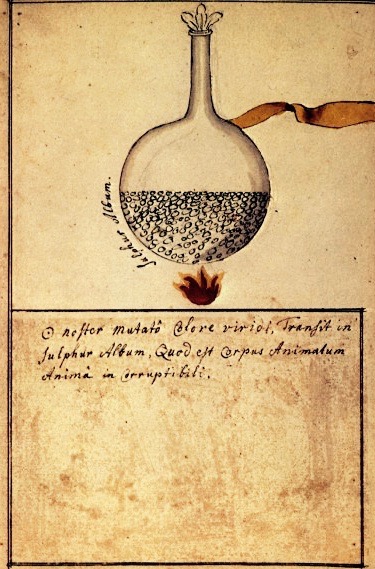 Sulphur Album.
☉ noster mutatô Colore viridi, Transit in
Sulphur Album, Quod est Corpus Animatum
Animâ in Corruptibili.